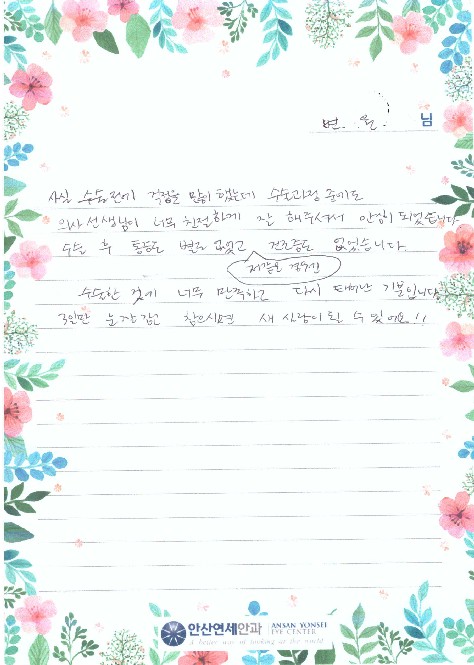 변. 율. 님
사실 수술 전에 걱정을 많이 했는데 수술과정 중에도
의사선생님이 너무 친절하게 잘 해주셔서 안심이 되었습니다
수술 후 통증도 별로 없었고 건조증도 없었습니다.
저같은 경우엔
수술한 것에 너무 만족하고 다시 태어난 기분입니다
3일만 눈 감고 참으시면 새 사람이 될 수 있어요!!
안산연세안과 ANSAN YONSEI
EYE CENTER
A better way of looking at the world